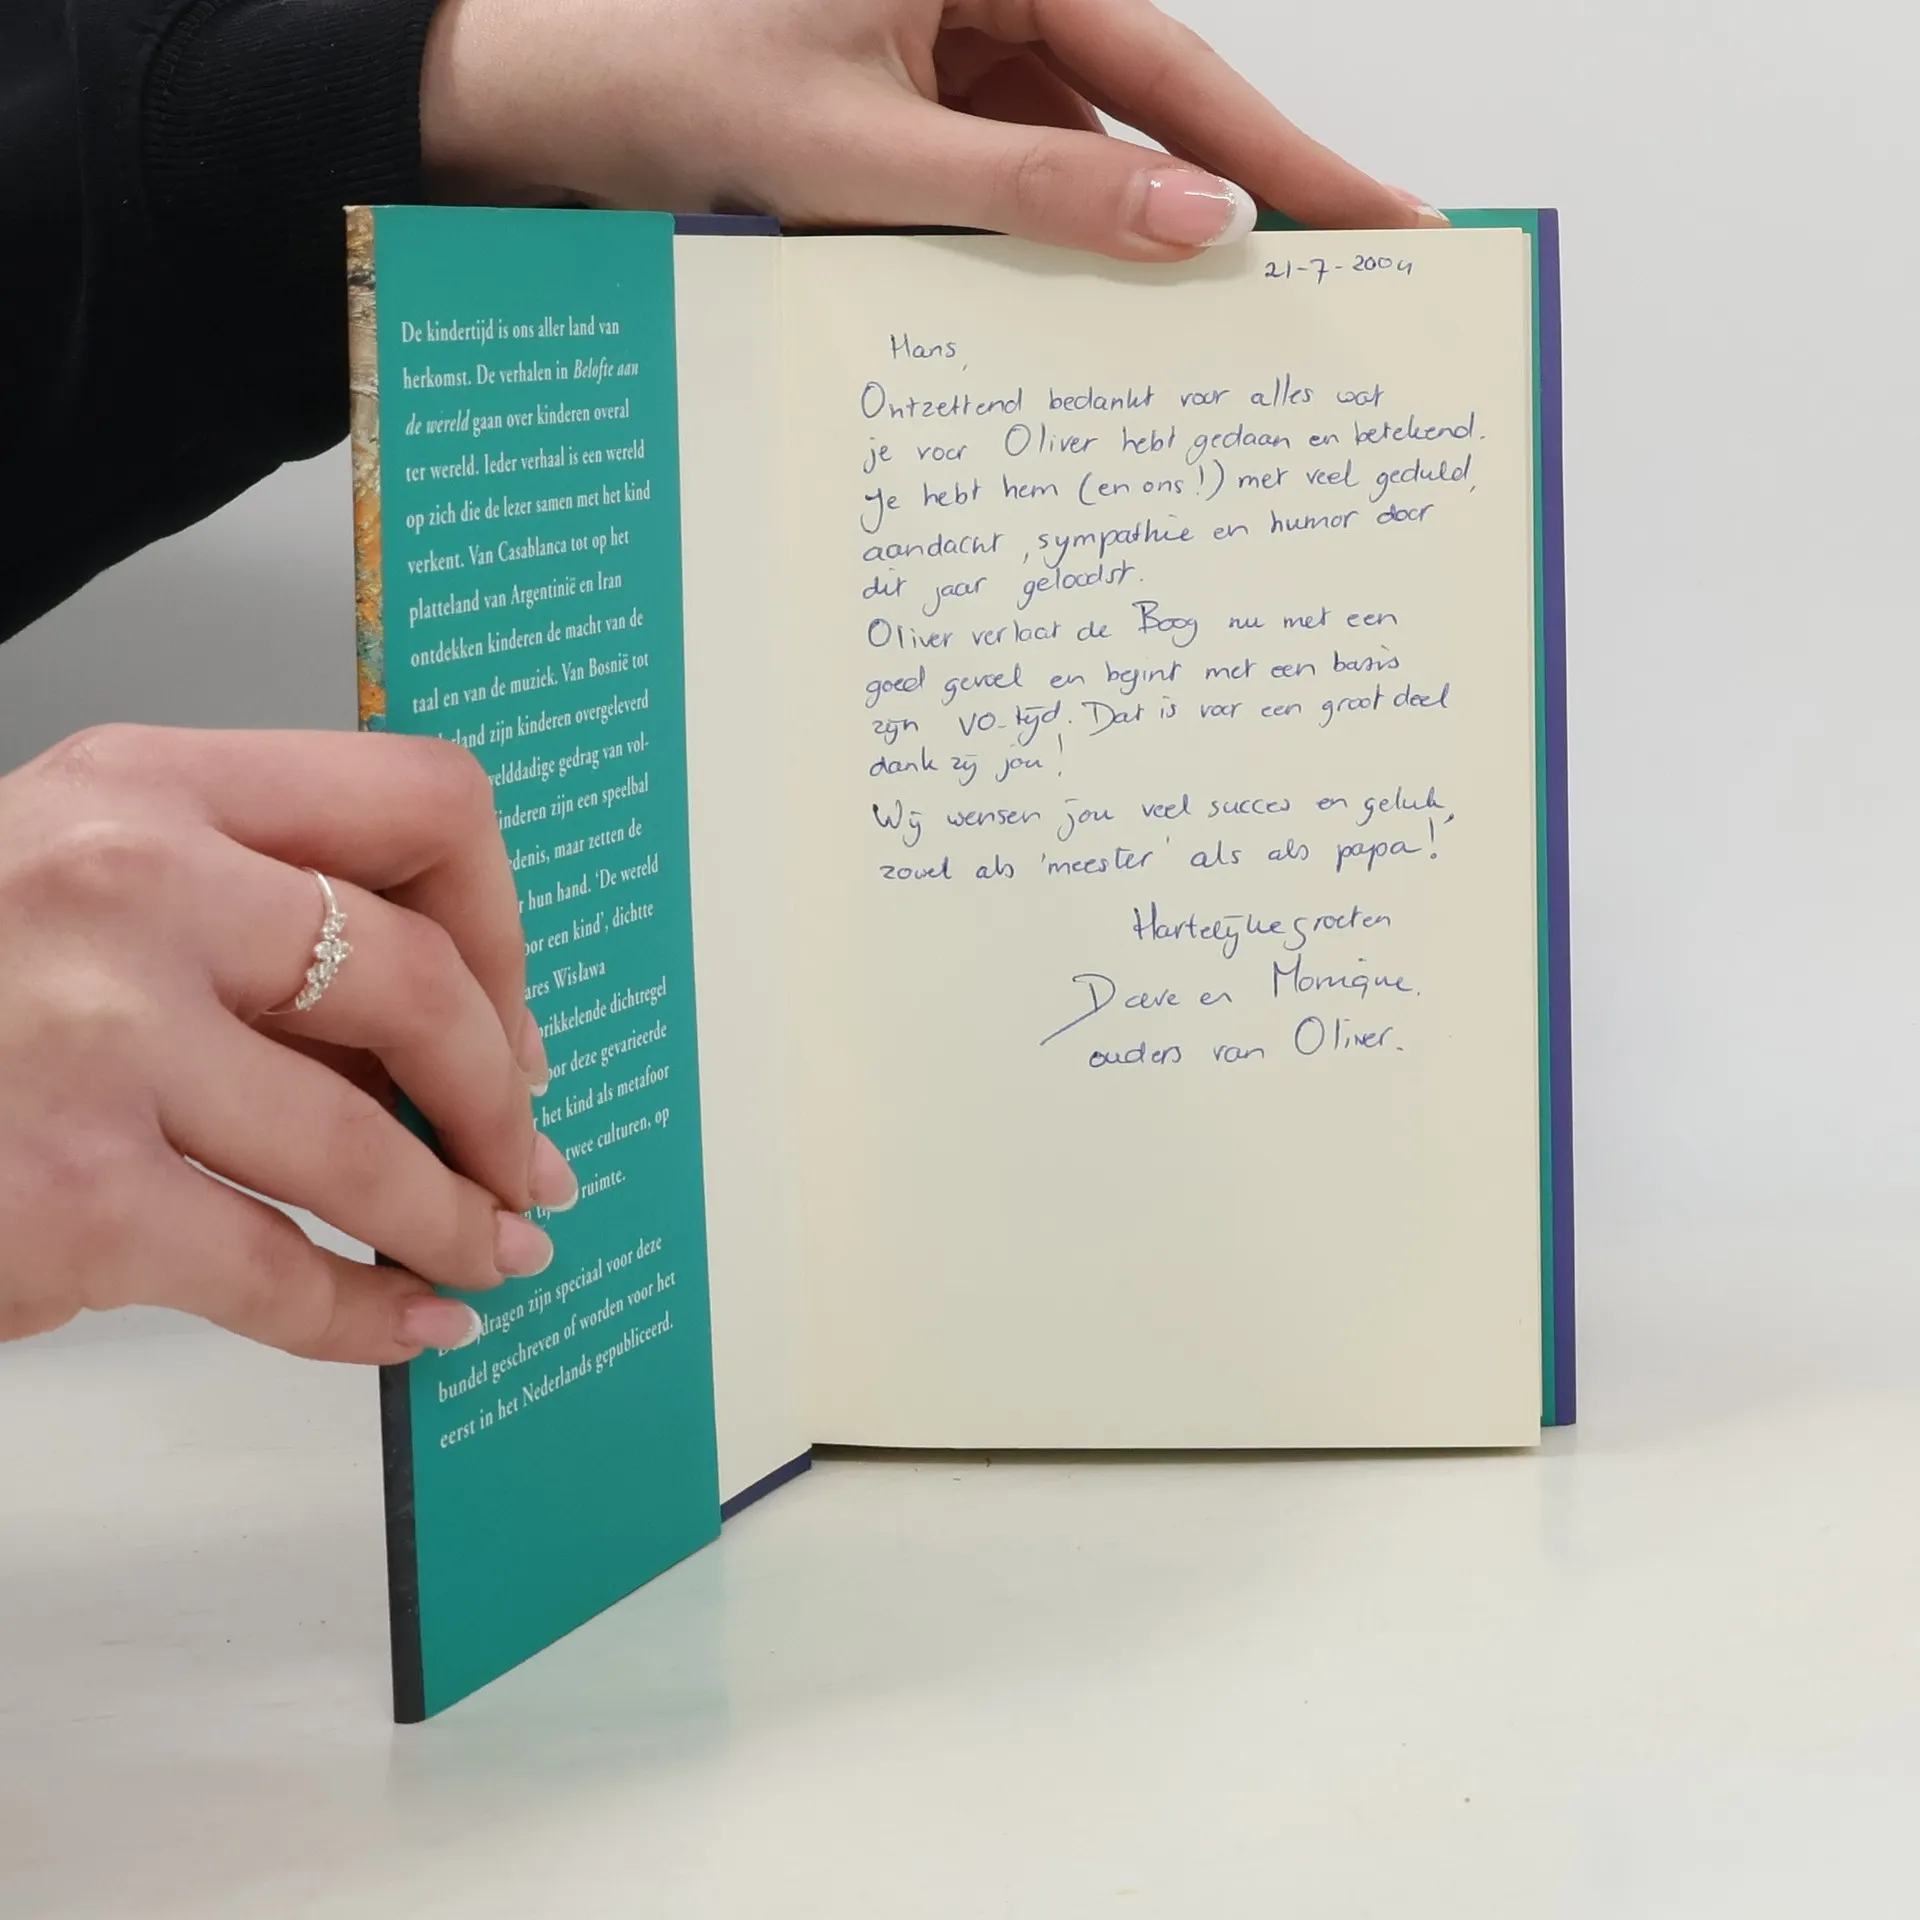 De kindertijd is ons aller land van
herkomst. De verhalen in Belofte aan
de wereld gaan over kinderen overal
ter wereld. Ieder verhaal is een wereld
op zich die de lezer samen met het kind
verkent. Van Casablanca tot op het
platteland van Argentinië en Iran
ontdekken kinderen de macht van de
taal en van de muziek. Van Bosnië tot
land zijn kinderen overgeleverd
welddadige gedrag van vol-
inderen zijn een speelbal
denis, maar zetten de
r hun hand. 'De wereld
oor een kind', dichtte
ares Wisława
prikkelende dichtregel
oor deze gevarieerde
r het kind als metafoor
twee culturen, op
ruimte.
dragen zijn speciaal voor deze
bundel geschreven of worden voor het
eerst in het Nederlands gepubliceerd.
21-7-2004
Hans,
Ontzettend bedankt voor alles wat
je voor Oliver hebt gedaan en betekend.
Je hebt hem (en ons!) met veel geduld,
aandacht, sympathie en humor door
dit jaar geloodst.
Oliver verlaat de Boog nu met een
goed gevoel en begint met een basis
zijn VO-tijd. Dat is voor een groot deel
dank zij jou!
Wij wensen jou veel succes en geluk,
zowel als 'meester' als als papa!
Hartelijke groeten
Dave en Monique.
ouders van Oliver.